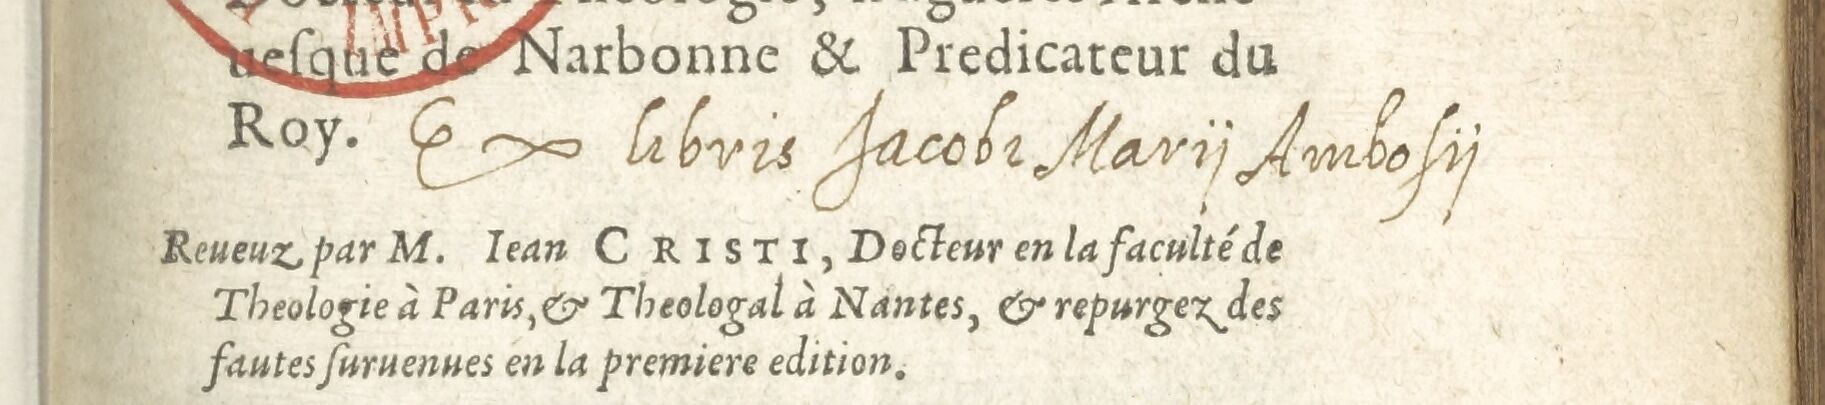 Docteur en Theologie, n'agueres Arche-
uesque de Narbonne & Predicateur du
Roy. Ex libris Jacobi Marij Ambosij
Reueuz par M. Iean CRISTI, Docteur en la faculté de
Theologie à Paris, & Theologal à Nantes, & repurgez des
fautes ſuruenues en la premiere edition.